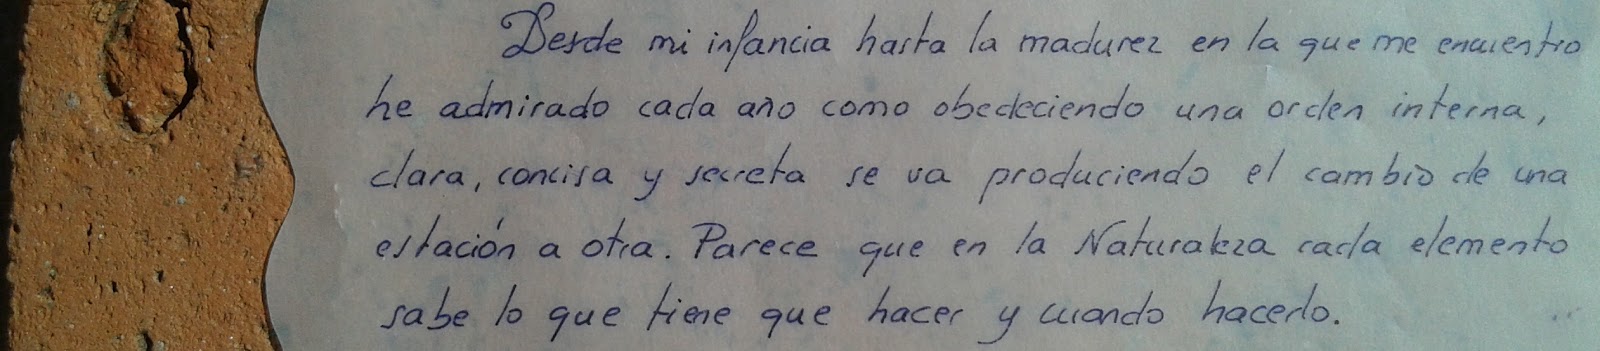 Desde mi infancia hasta la madurez en la que me encuentro
he admirado cada año como obedeciendo una orden interna,
clara, concisa y secreta se va produciendo el cambio de una
estación a otra. Parece que en la Naturaleza cada elemento
sabe lo que tiene que hacer y cuando hacerlo.